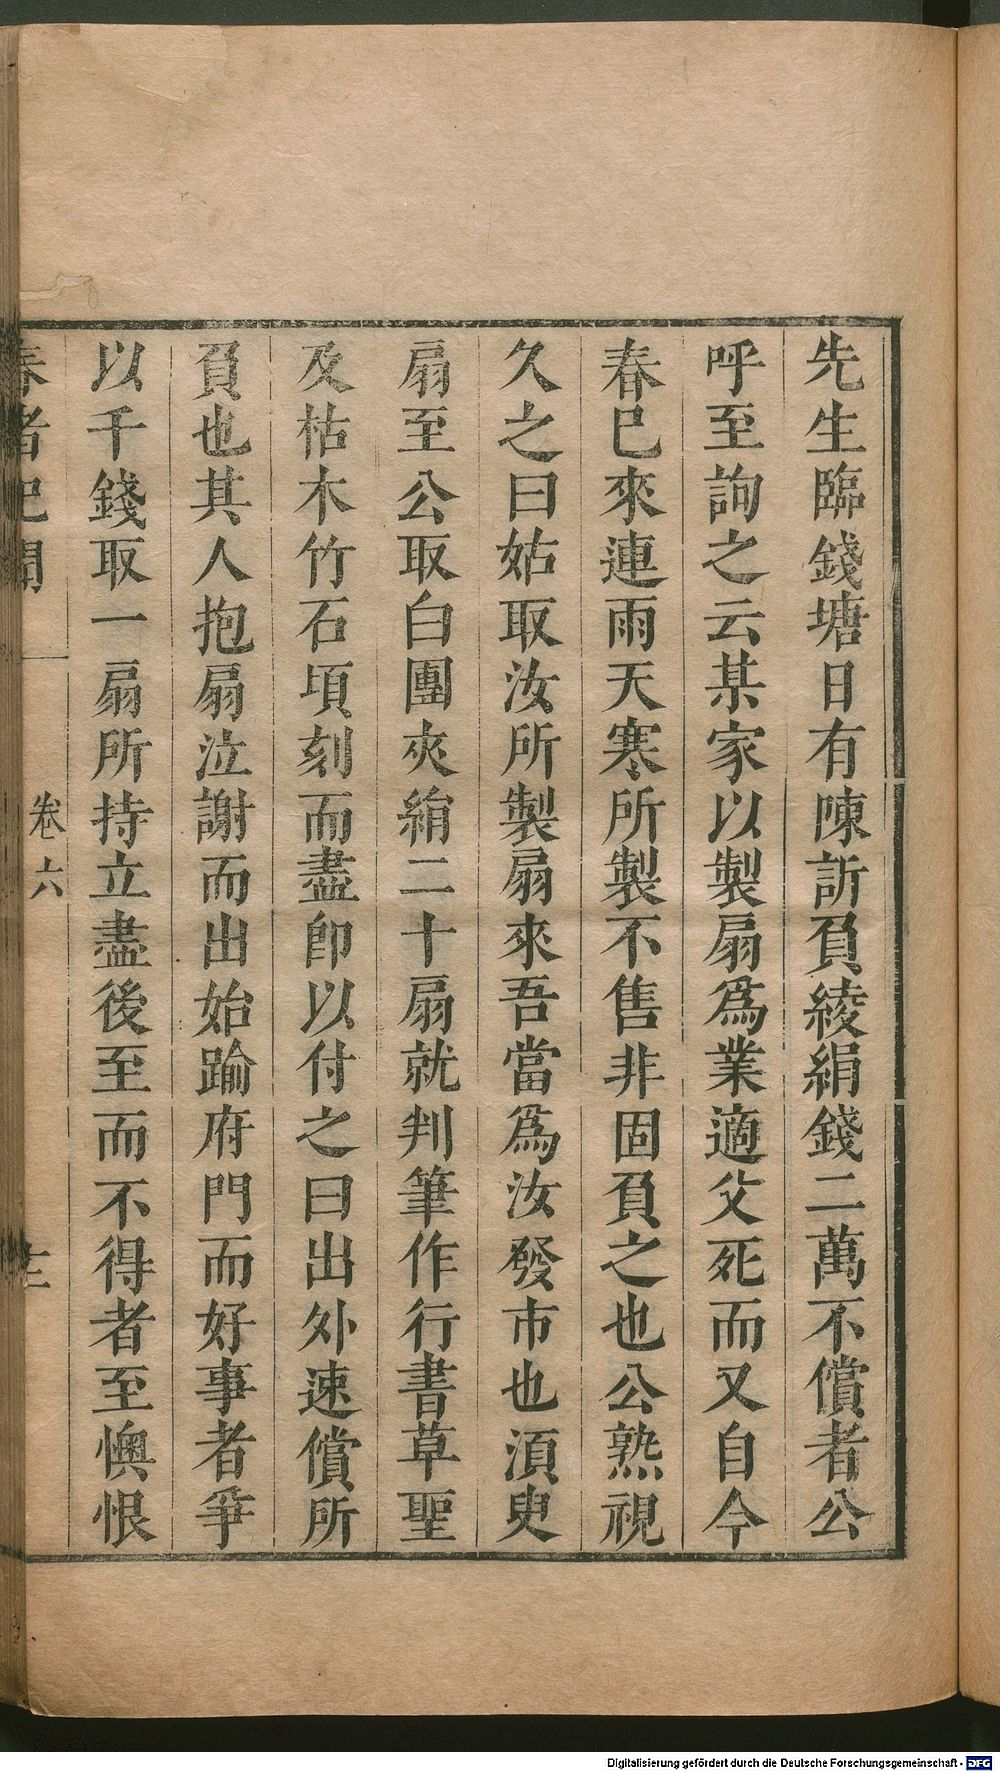 先生臨錢塘日有陳訴負綾絹錢二萬不償者公
呼至詢之云某家以製扇爲業適父死而又自今
春已來連雨天寒所製不售非固負之也公熟視
久之曰姑取汝所製扇來吾當爲汝發市也須臾
扇至公取白團夾絹二十扇就判筆作行書草聖
及枯木竹石頃刻而盡卽以付之曰出外速償所
負也其人抱扇泣謝而出始踰府門而好事者爭
以千錢取一扇所持立盡後至而不得者至懊恨
春渚紀聞
卷六
Digitalisierung gefördert durch die Deutsche Forschungsgemeinschaft - DFG